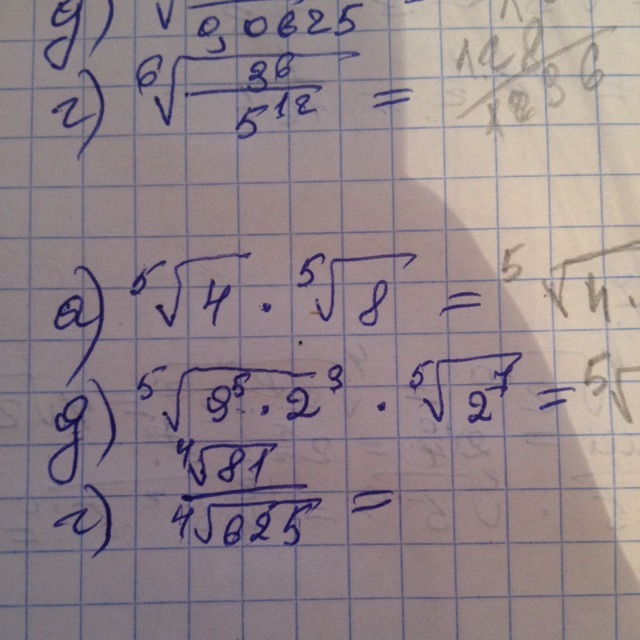 д) √0,0625 =
г) ⁶√(3⁶/5¹²) =
а) ⁵√4 · ⁵√8 = ⁵√4·
д) ⁵√(3⁵·2³) · ⁵√(2⁷) = ⁵√
г) ⁴√81 / ⁴√625 =